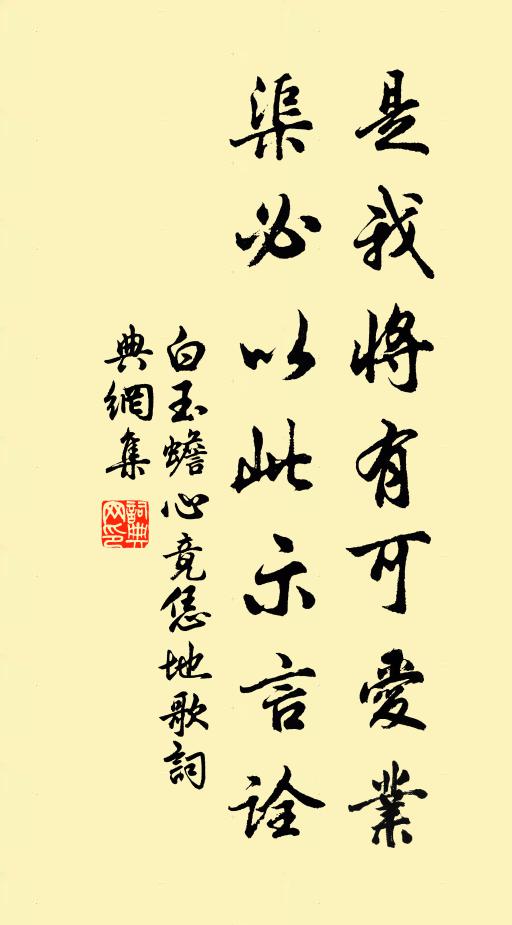 是我將有可愛業
渠必以此示言詮
白玉蟾心竟恁地歌詞
典網集
詞典
网印